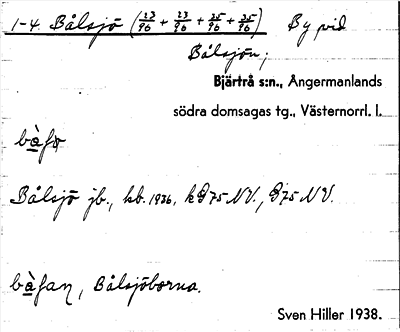 1-4. Bålsjö (23/96 + 23/96 + 25/96 + 25/96) By vid
Bålsjön;
Bjärtrå s:n., Ångermanlands
södra domsagas tg., Västernorrl. l.
Bålsjö jb., kb. 1936, kD75NV., G75NV.
Bålsjöborna.
Sven Hiller 1938.